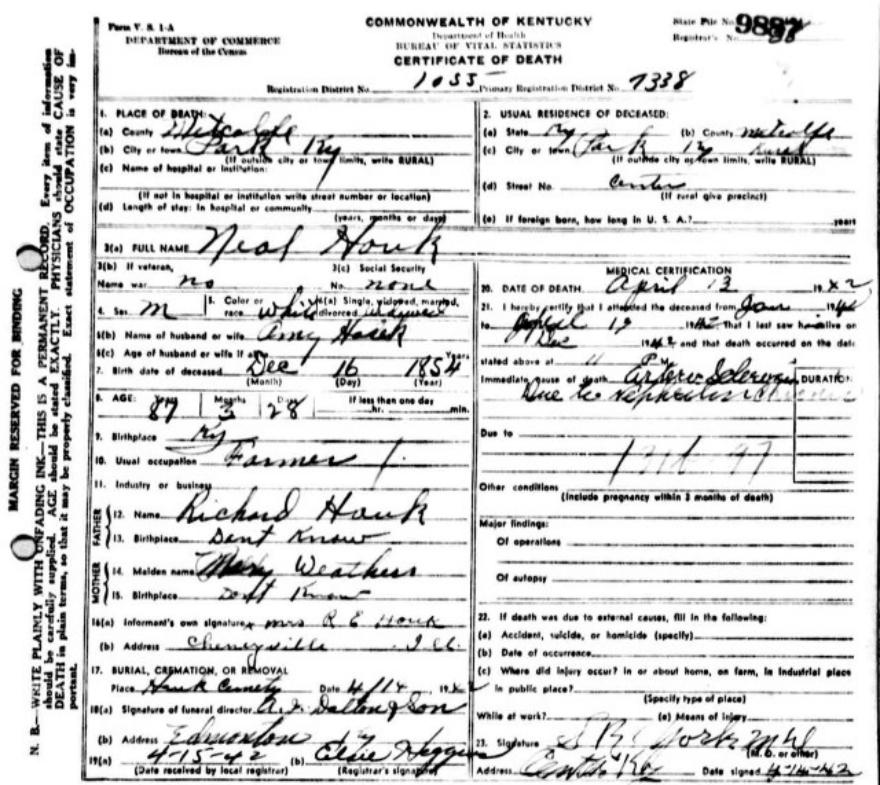 MARGIN RESERVED FOR BINDING
N. B.—WRITE PLAINLY WITH UNFADING INK—THIS IS A PERMANENT RECORD. Every item of information
should be carefully supplied. AGE should be stated EXACTLY. PHYSICIANS should state CAUSE OF
DEATH in plain terms, so that it may be properly classified. Exact statement of OCCUPATION is very im-
portant.
Form V. S. 1-A
DEPARTMENT OF COMMERCE
Bureau of the Census
COMMONWEALTH OF KENTUCKY
Department of Health
BUREAU OF VITAL STATISTICS
CERTIFICATE OF DEATH
State File No. 9887
Registrar's No. 88
Registration District No. 1055 Primary Registration District No. 7338
1. PLACE OF DEATH:
(a) County Metcalfe
(b) City or town Park Ky
(If outside city or town limits, write RURAL)
(c) Name of hospital or institution:
(If not in hospital or institution write street number or location)
(d) Length of stay: In hospital or community
(years, months or days)
2. USUAL RESIDENCE OF DECEASED:
(a) State Ky (b) County Metcalfe
(c) City or town Park Ky Rural
(If outside city or town limits, write RURAL)
(d) Street No. Center
(If rural give precinct)
(e) If foreign born, how long in U. S. A.? years
3(a) FULL NAME Neal Houk
3(b) If veteran,
Name war no
3(c) Social Security
No. none
4. Sex M 5. Color or
race white 6(a) Single, widowed, married,
divorced
6(b) Name of husband or wife Amy Houk
6(c) Age of husband or wife if alive Years
7. Birth date of deceased Dec 16 1854
(Month) (Day) (Year)
8. AGE: Years Months Days If less than one day
87 3 28 hr. min.
9. Birthplace Ky
10. Usual occupation Farmer
11. Industry or business
FATHER
12. Name Richard Houk
13. Birthplace Dont Know
MOTHER
14. Maiden name Mary Weathers
15. Birthplace Dont Know
16(a) Informant's own signature Mrs R E Houk
(b) Address Cheneyville Ill.
17. BURIAL, CREMATION, OR REMOVAL
Place Houk Cemetery Date 4/14, 1942
18(a) Signature of funeral director Dalton & Son
(b) Address Edmonton Ky
19(a) 4-15-42 (b) Elsie
(Date received by local registrar) (Registrar's signature)
MEDICAL CERTIFICATION
20. DATE OF DEATH April 13 1942
21. I hereby certify that I attended the deceased from Jan 1942
to 1942 That I last saw h alive on
1942 and that death occurred on the date
stated above at 11 P M.
Immediate cause of death Arterio Sclerosis DURATION
Due to Nephritis Chronic
Due to
131b-97
Other conditions
(Include pregnancy within 3 months of death)
Major findings:
Of operations
Of autopsy
22. If death was due to external causes, fill in the following:
(a) Accident, suicide, or homicide (specify)
(b) Date of occurrence
(c) Where did injury occur? in or about home, on farm, in industrial place
in public place?
(Specify type of place)
While at work? (e) Means of injury
23. Signature York M D
(M. D. or other)
Address Center Ky Date signed 4-14-42